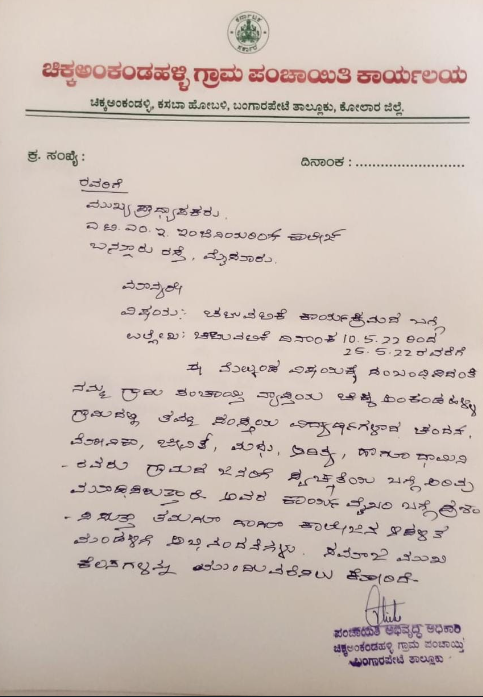 ಕರ್ನಾಟಕ
ಸರ್ಕಾರ
ಚಿಕ್ಕಅಂಕಂಡಹಳ್ಳಿ ಗ್ರಾಮ ಪಂಚಾಯಿತಿ ಕಾರ್ಯಾಲಯ
ಚಿಕ್ಕಅಂಕಂಡಳ್ಳಿ, ಕಸಬಾ ಹೋಬಳಿ, ಬಂಗಾರಪೇಟೆ ತಾಲ್ಲೂಕು, ಕೋಲಾರ ಜಿಲ್ಲೆ.
ಕ್ರ. ಸಂಖ್ಯೆ :
ದಿನಾಂಕ : ..........................
ರವರಿಗೆ
ಮುಖ್ಯ ಪ್ರಾಧ್ಯಾಪಕರು.
ಎ.ಟಿ.ಎಂ.ಇ. ಇಂಜಿನಿಯರಿಂಗ್ ಕಾಲೇಜ್
ಬನ್ನೂರು ರಸ್ತೆ, ಮೈಸೂರು.
ಮಾನ್ಯರೇ
ವಿಷಯ:- ಚಟುವಟಿಕೆ ಕಾರ್ಯಕ್ರಮದ ಬಗ್ಗೆ
ಉಲ್ಲೇಖ: ಚಟುವಟಿಕೆ ದಿನಾಂಕ 10.5.22 ರಿಂದ
25.5.22 ರವರೆಗೆ
ಈ ಮೇಲ್ಕಂಡ ವಿಷಯಕ್ಕೆ ಸಂಬಂಧಿಸಿದಂತೆ
ನಮ್ಮ ಗ್ರಾಮ ಪಂಚಾಯ್ತಿ ವ್ಯಾಪ್ತಿಯ ಚಿಕ್ಕ ಅಂಕಂಡಹಳ್ಳಿ
ಗ್ರಾಮದಲ್ಲಿ ತಮ್ಮ ಸಂಸ್ಥೆಯ ವಿದ್ಯಾರ್ಥಿಗಳಾದ ಚಂದನ,
ಮೋನಿಕಾ, ಜೀವಿತ್, ಮಧು, ಆದಿತ್ಯ, ಹಾಗೂ ಧಾಮಿನಿ
ರವರು ಗ್ರಾಮದ ಜನರಿಗೆ ಸ್ವಚ್ಛತೆಯ ಬಗ್ಗೆ ಅರಿವು
ಮೂಡಿಸಿರುತ್ತಾರೆ. ಅವರ ಕಾರ್ಯ ವೈಖರಿ ಬಗ್ಗೆ ಪ್ರಶಂ
-ಸಿಸುತ್ತ ತಮಗೂ ಹಾಗೂ ಕಾಲೇಜಿನ ಆಡಳಿತ
ಮಂಡಳಿಗೆ ಅಭಿನಂದನೆಗಳು. ಸಮಾಜ ಮುಖಿ
ಕೆಲಸಗಳನ್ನು ಮುಂದುವರೆಸಲು ಕೋರಿದೆ-
ಪಂಚಾಯಿತಿ ಅಭಿವೃದ್ಧಿ ಅಧಿಕಾರಿ
ಚಿಕ್ಕಅಂಕಂಡಹಳ್ಳಿ ಗ್ರಾಮ ಪಂಚಾಯ್ತಿ
ಬಂಗಾರಪೇಟೆ ತಾಲ್ಲೂಕು